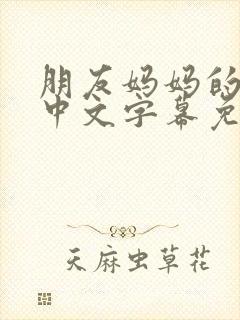 朋友妈妈的
中文字幕免
天麻虫草花